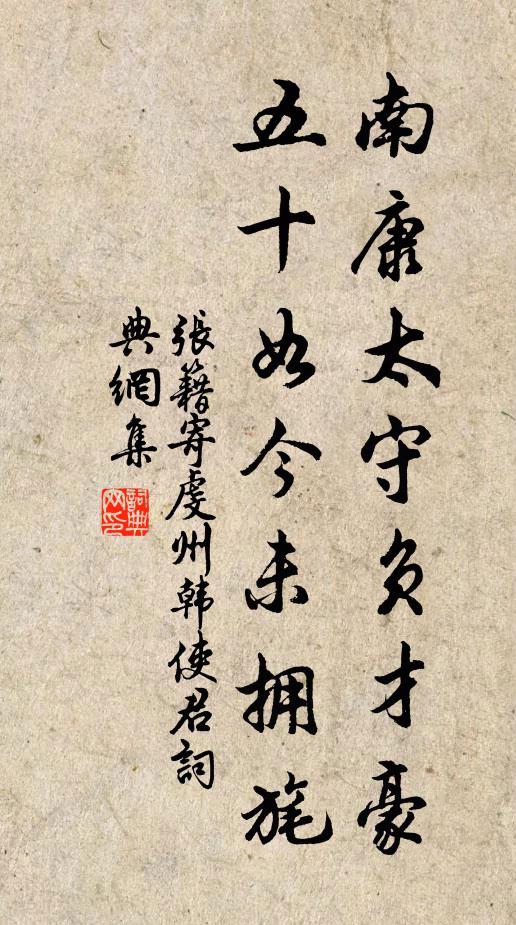 南康太守负才豪
五十如今未拥旄
張籍寄虔州韩使君詞
典網集
詞典网印